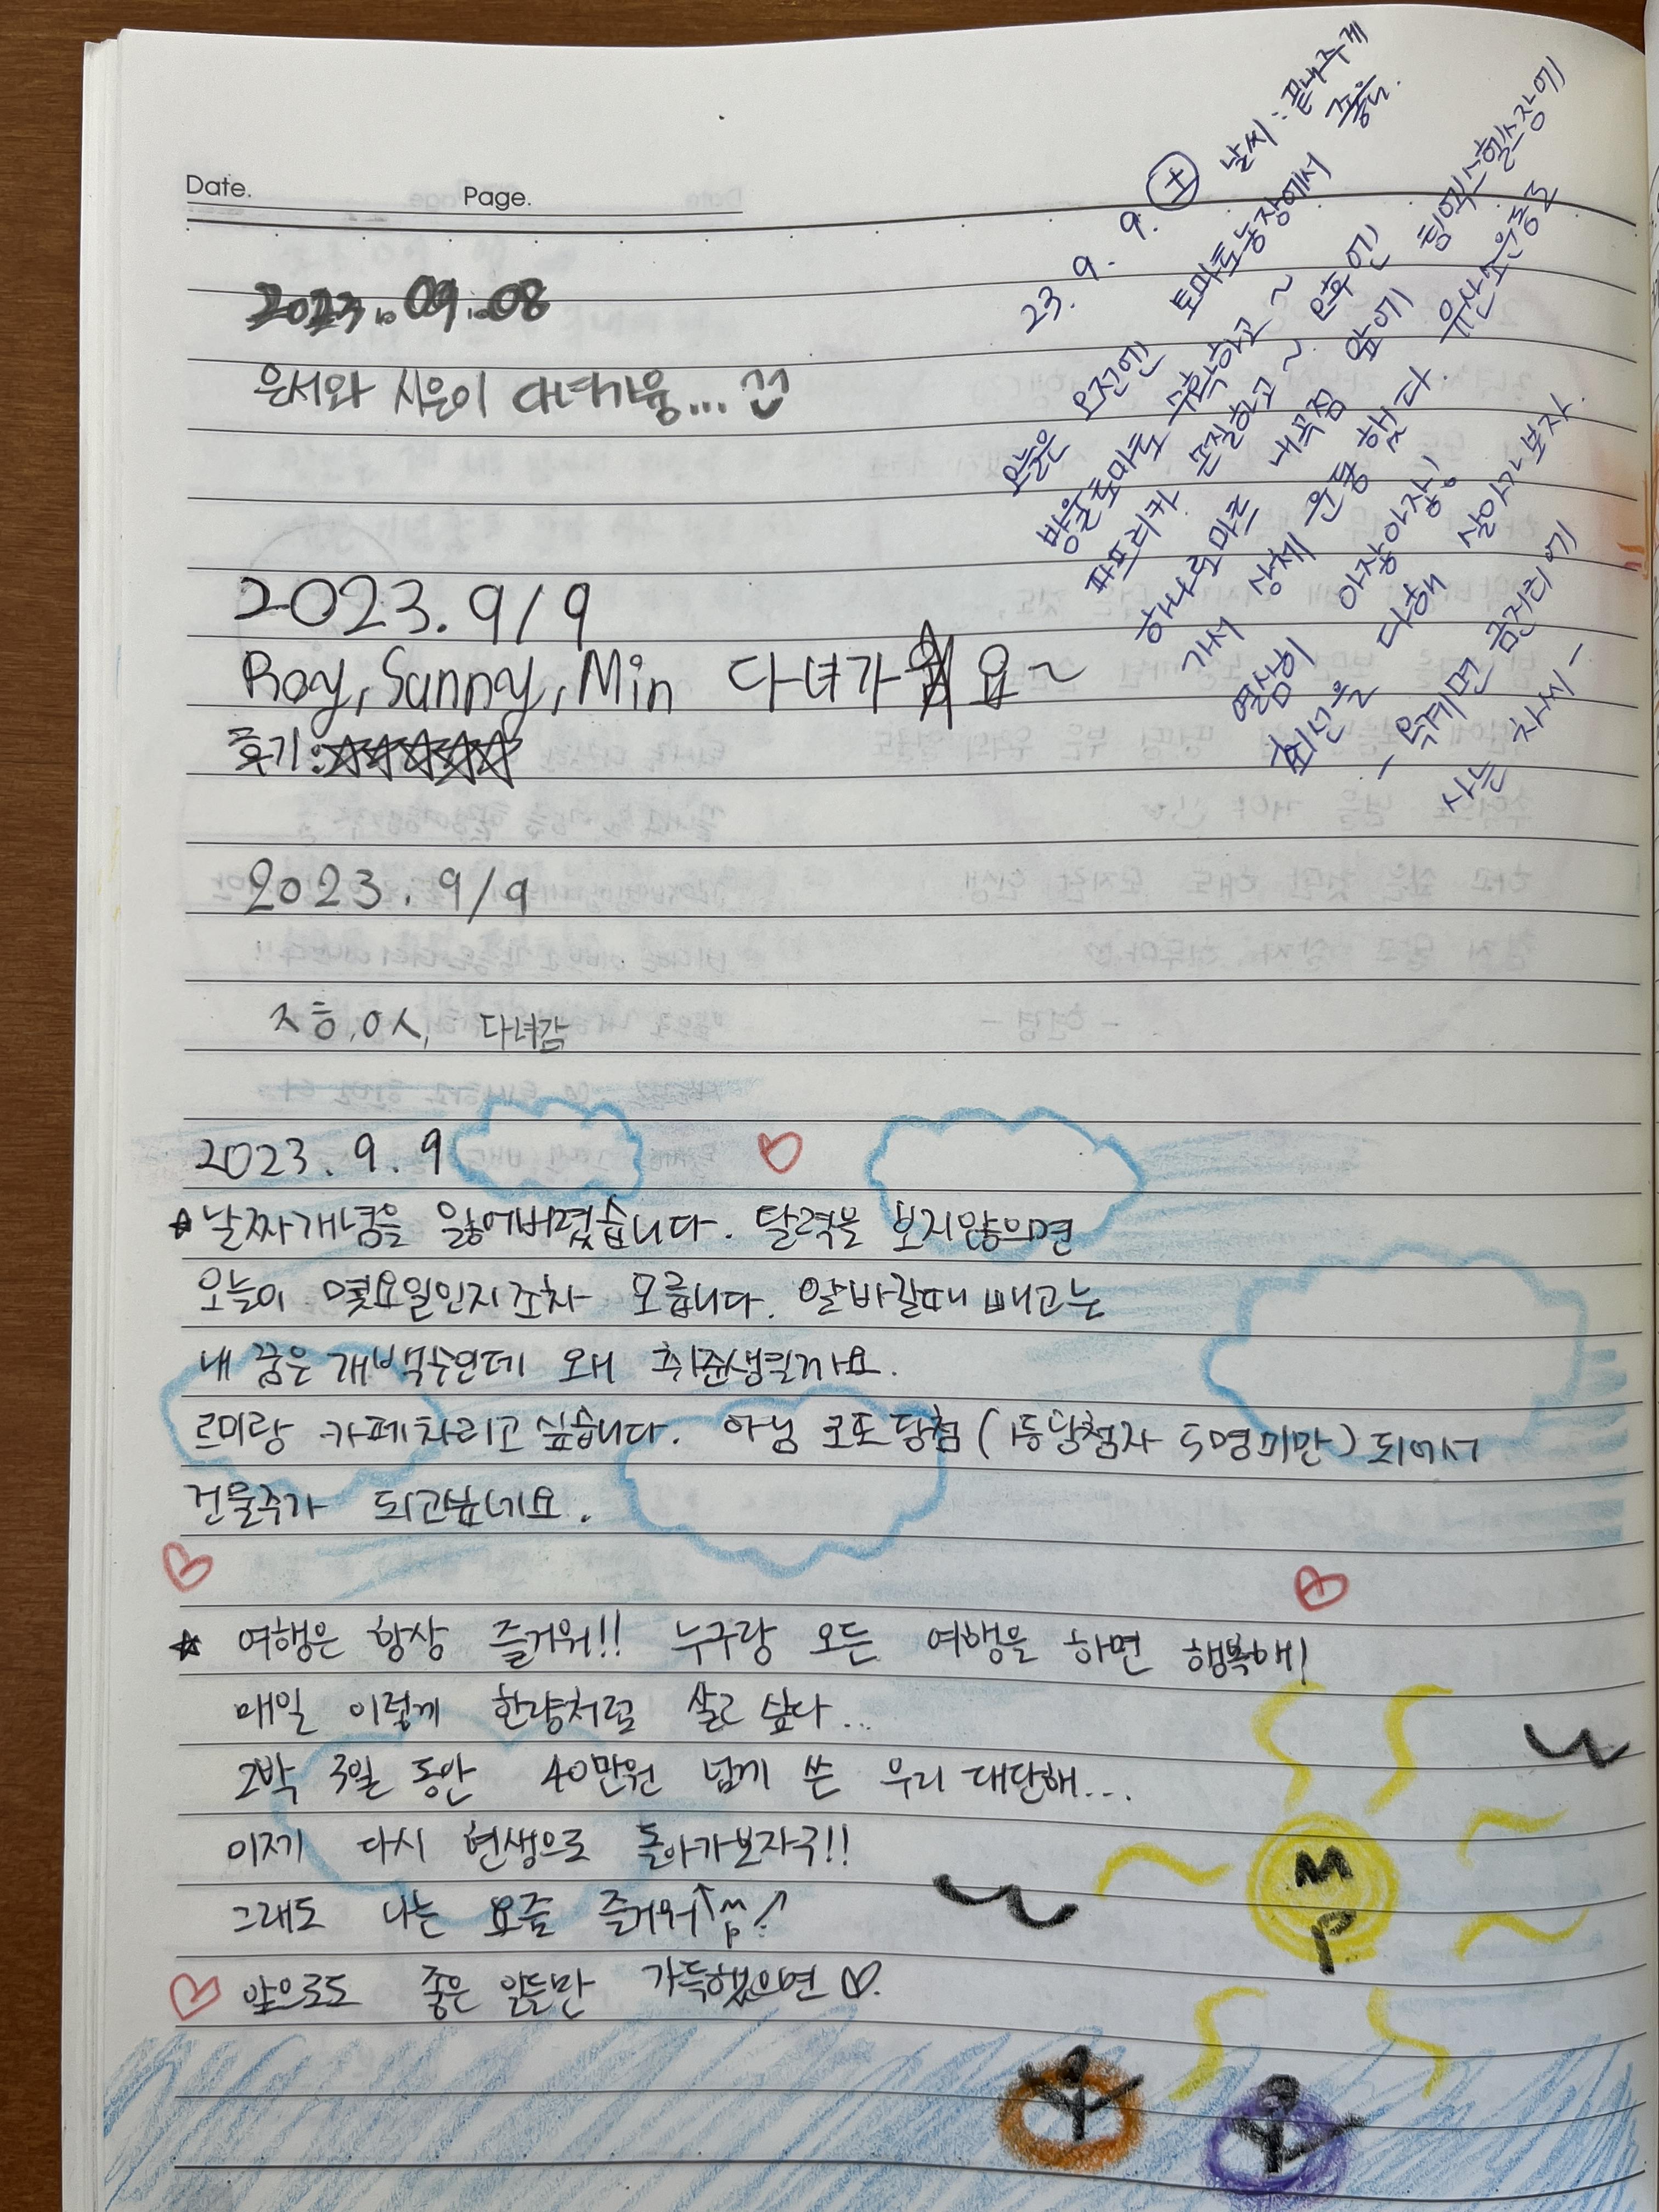 Date.
Page.
2023.09.08
은서와 시은이 다녀가용...
23. 9. 9. 土 날씨 : 끝내주게
좋음.
오늘은 오전엔 토마토농장에서
방울토마토 수확하고~
파프리카 손질하고~ 오후엔
하나로마트 내곡점 앞에 힘익스헬스장에
가서 상체 운동 했다. 유산소운동도
열심히 아장아장!
최선을 다해 살아가보자.
- 육계면 금전리에
사는 차씨 -
2023. 9/9
Roy, Sunny, Min 다녀가 요~
후기:☆☆☆☆☆
2023. 9/9
ㅈㅎ,ㅇㅅ, 다녀감
2023. 9. 9
☆ 날짜개념을 잃어버렸습니다. 달력을 보지않으면
오늘이 몇요일인지조차 모릅니다. 알바갈때 빼고는
내 꿈은 개백수인데 왜 취준생일까요.
르미랑 카페차리고싶습니다. 아님 로또당첨 (1등당첨자 5명미만) 되어서
건물주가 되고싶네요.
☆ 여행은 항상 즐거워!! 누구랑 오든 여행을 하면 행복해!
매일 이렇게 한량처럼 살고 싶다...
2박 3일 동안 40만원 넘게 쓴 우리 대단해...
이제 다시 현생으로 돌아가보자구!!
그래도 나는 요즘 즐거워↑
M
P
앞으로도 좋은 일들만 가득했으면 ♡.